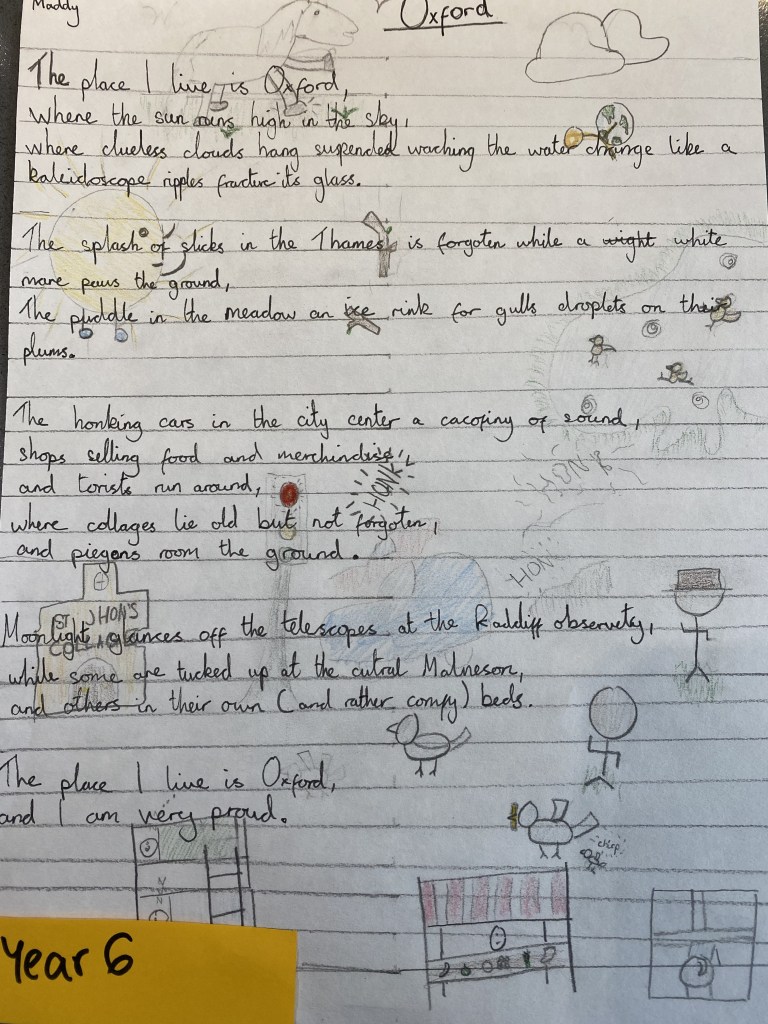 Maddy
Oxford
The place I live is Oxford,
where the sun runs high in the sky,
where clueless clouds hang suspended waching the water change like a
kaleidoscope ripples fracture its glass.
The splash of sticks in the Thames is forgoten while a wight white
mare paws the ground,
The puddle in the meadow an ice rink for gulls droplets on their
plums.
The honking cars in the city center a cacofiny of sound,
shops selling food and merchindise,
HONK
and torists run around,
HONK
where collages lie old but not forgoten,
and piegens room the ground.
HONK
ST JHON'S
COLLAGE
Moonlight glances off the telescopes at the Raddiff observety,
while some are tucked up at the cutral Malmeson,
and others in their own (and rather comfy) beds.
The place I live is Oxford,
and I am very proud.
chirp
Year 6